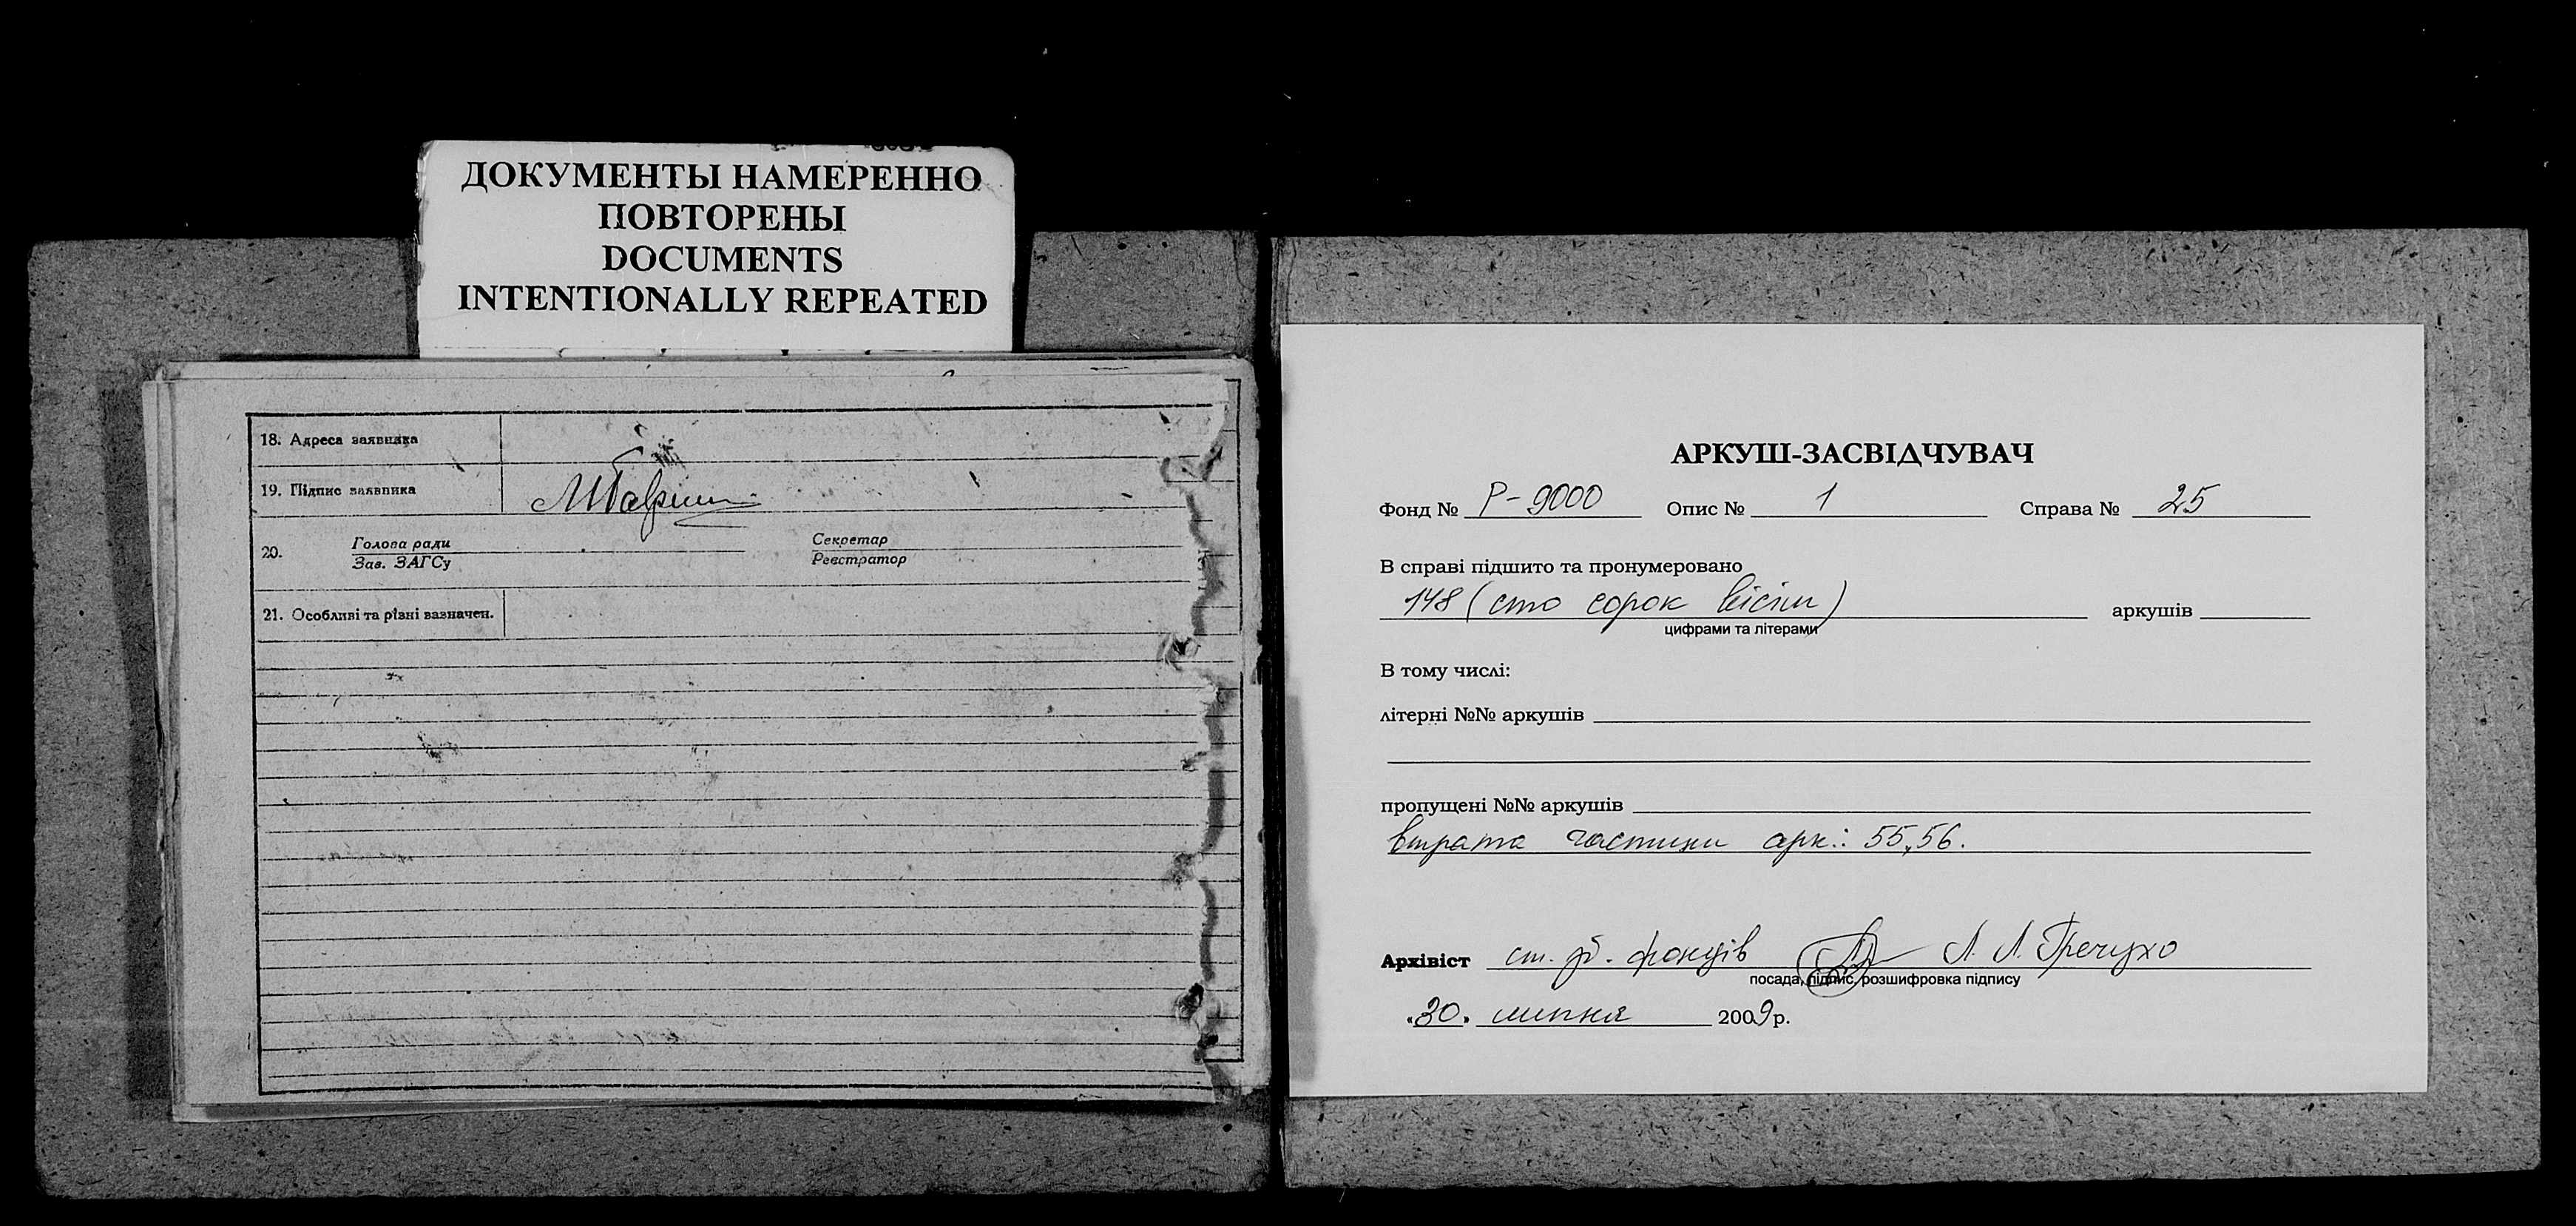 ДОКУМЕНТЫ НАМЕРЕННО
ПОВТОРЕНЫ
DOCUMENTS
INTENTIONALLY REPEATED
18. Адреса заявника
19. Підпис заявника
20. Голова ради Секретар
Зав. ЗАГСу Реєстратор
21. Особливі та різні зазначен.
АРКУШ-ЗАСВІДЧУВАЧ
Фонд № Р-9000 Опис № 1 Справа № 25
В справі підшито та пронумеровано
148 (сто сорок вісім) аркушів
цифрами та літерами
В тому числі:
літерні №№ аркушів
пропущені №№ аркушів
втрата частини арк.: 55,56.
Архівіст ст. фондів Л. Л. Гречухо
посада, підпис, розшифровка підпису
«30» липня 2009 р.